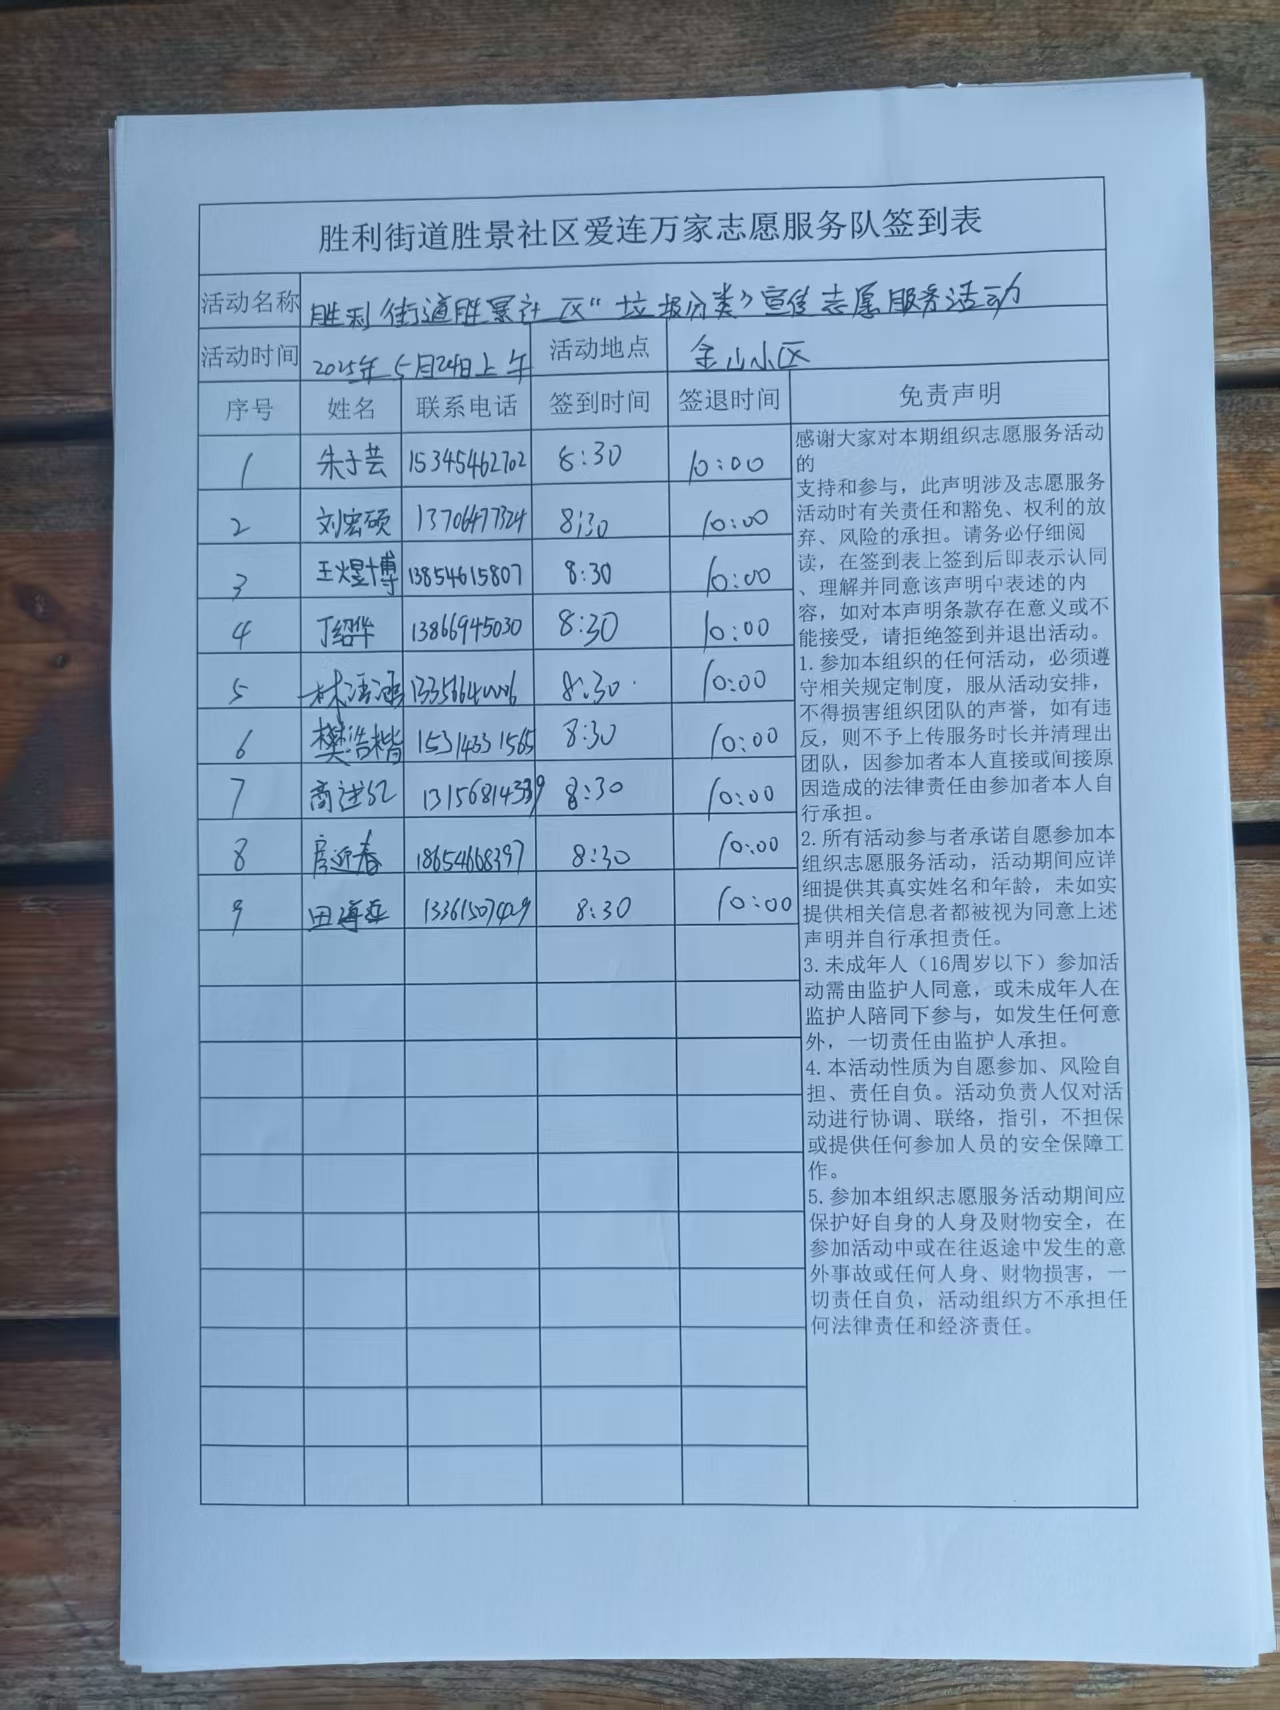 胜利街道胜景社区爱连万家志愿服务队签到表
活动名称 胜利街道胜景社区“垃圾分类”宣传志愿服务活动
活动时间 2025年5月24日上午 活动地点 金山小区
序号 姓名 联系电话 签到时间 签退时间 免责声明
1 朱子芸 15345462702 8:30 10:00
2 刘宏硕 13706477324 8:30 10:00
3 王煜博 13854615807 8:30 10:00
4 丁绍华 13866945030 8:30 10:00
5 8:30 10:00
6 樊浩楷 15314331565 8:30 10:00
7 8:30 10:00
8 房近春 18654668397 8:30 10:00
9 田 13361507429 8:30 10:00
感谢大家对本期组织志愿服务活动
的
支持和参与，此声明涉及志愿服务
活动时有关责任和豁免、权利的放
弃、风险的承担。请务必仔细阅
读，在签到表上签到后即表示认同
、理解并同意该声明中表述的内
容，如对本声明条款存在意义或不
能接受，请拒绝签到并退出活动。
1.参加本组织的任何活动，必须遵
守相关规定制度，服从活动安排，
不得损害组织团队的声誉，如有违
反，则不予上传服务时长并清理出
团队，因参加者本人直接或间接原
因造成的法律责任由参加者本人自
行承担。
2.所有活动参与者承诺自愿参加本
组织志愿服务活动，活动期间应详
细提供其真实姓名和年龄，未如实
提供相关信息者都被视为同意上述
声明并自行承担责任。
3.未成年人（16周岁以下）参加活
动需由监护人同意，或未成年人在
监护人陪同下参与，如发生任何意
外，一切责任由监护人承担。
4.本活动性质为自愿参加、风险自
担、责任自负。活动负责人仅对活
动进行协调、联络，指引，不担保
或提供任何参加人员的安全保障工
作。
5.参加本组织志愿服务活动期间应
保护好自身的人身及财物安全，在
参加活动中或在往返途中发生的意
外事故或任何人身、财物损害，一
切责任自负，活动组织方不承担任
何法律责任和经济责任。